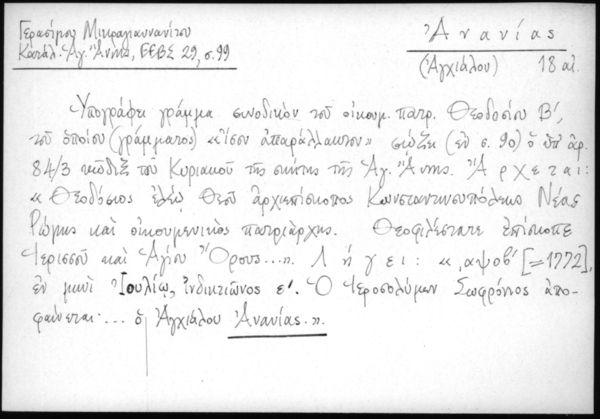 Γερασίμου Μικραγιαννανίτου
Κατάλ. Ἁγ. Ἄννης, ΕΕΒΣ 29, σ. 99
Ἀνανίας
(Ἀγχιάλου) 18 αἰ.
Ὑπογράφει γράμμα συνοδικὸν τοῦ οἰκουμ. πατρ. Θεοδοσίου Β',
τοῦ ὁποίου (γράμματος) «ἴσον ἀπαράλλακτον» σώζει (ἐν σ. 90) ὁ ὑπ' ἀρ.
84/3 κῶδιξ τοῦ Κυριακοῦ τῆς σκήτης τῆς Ἁγ. Ἄννης. Ἄρχεται:
«Θεοδόσιος ἐλέῳ Θεοῦ ἀρχιεπίσκοπος Κωνσταντινουπόλεως Νέας
Ρώμης καὶ οἰκουμενικὸς πατριάρχης. Θεοφιλέστατε ἐπίσκοπε
Ἱερισσοῦ καὶ Ἁγίου Ὄρους...». Λήγει: «͵αψοβ' [=1772],
ἐν μηνὶ Ἰουλίῳ, ἰνδικτιῶνος ε'. Ὁ Ἱεροσολύμων Σωφρόνιος ἀπο-
φαίνεται... ὁ Ἀγχιάλου Ἀνανίας.».